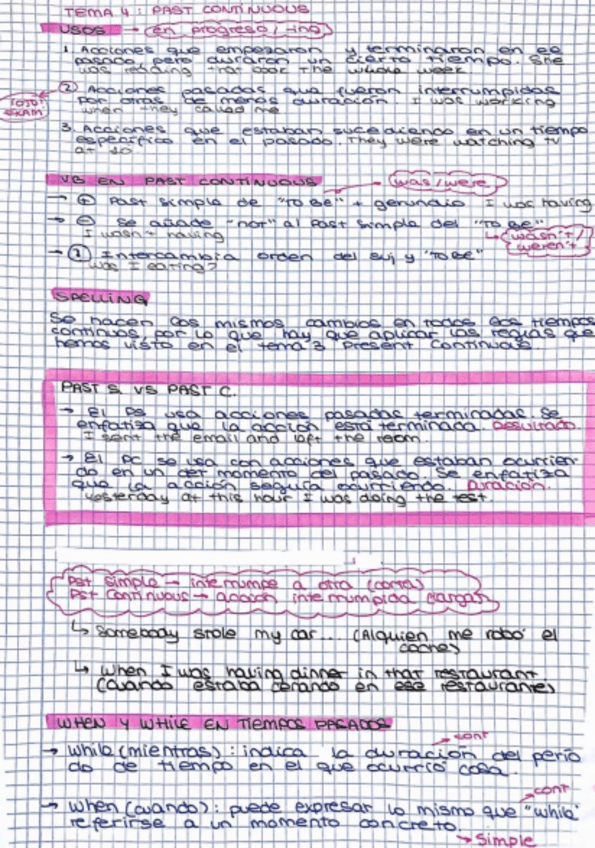 TEMA 4: PAST CONTINUOUS
USOS → en progreso / -ing
1. Acciones que empezaron y terminaron en el
pasado pero duraron un cierto tiempo. She
was reading that book the whole week
2. Acciones pasadas que fueron interrumpidas
por otras de menos duración. I was working
when they called me
EXAM
3. Acciones que estaban sucediendo en un tiempo
específico en el pasado. They were watching tv
at 10.
VB EN PAST CONTINUOUS was/were
→ + Past simple de "to be" + gerundio I was having
→ - Se añade "not" al Past simple del "TO BE"
I wasn't having wasn't/
weren't
→ ? Intercambia orden del suj y "to be"
was I eating?
SPELLING
Se hacen los mismos cambios en todos los tiempos
continuos, por lo que hay que aplicar las reglas que
hemos visto en el tema 3 Present Continuous
PAST S. VS PAST C.
→ El PS usa acciones pasadas terminadas. Se
enfatiza que la acción está terminada. Resultado.
I sent the email and left the room.
→ El PC se usa con acciones que estaban ocurrien-
do en un det momento del pasado. Se enfatiza
que la acción seguía ocurriendo. Duración.
Yesterday at this hour I was doing the test.
Pst Simple → interrumpe a otra (corta)
Pst Continuous → acción interrumpida (larga)
↳ Somebody stole my car... (Alguien me robó el
coche)
↳ When I was having dinner in that restaurant
(Cuando estaba cenando en ese restaurante)
WHEN Y WHILE EN TIEMPOS PASADOS
→ cont
→ While (mientras): indica la duración del perío
do de tiempo en el que ocurrió cosa.
→ cont
→ When (cuando): puede expresar lo mismo que "while"
referirse a un momento concreto.
→ Simple